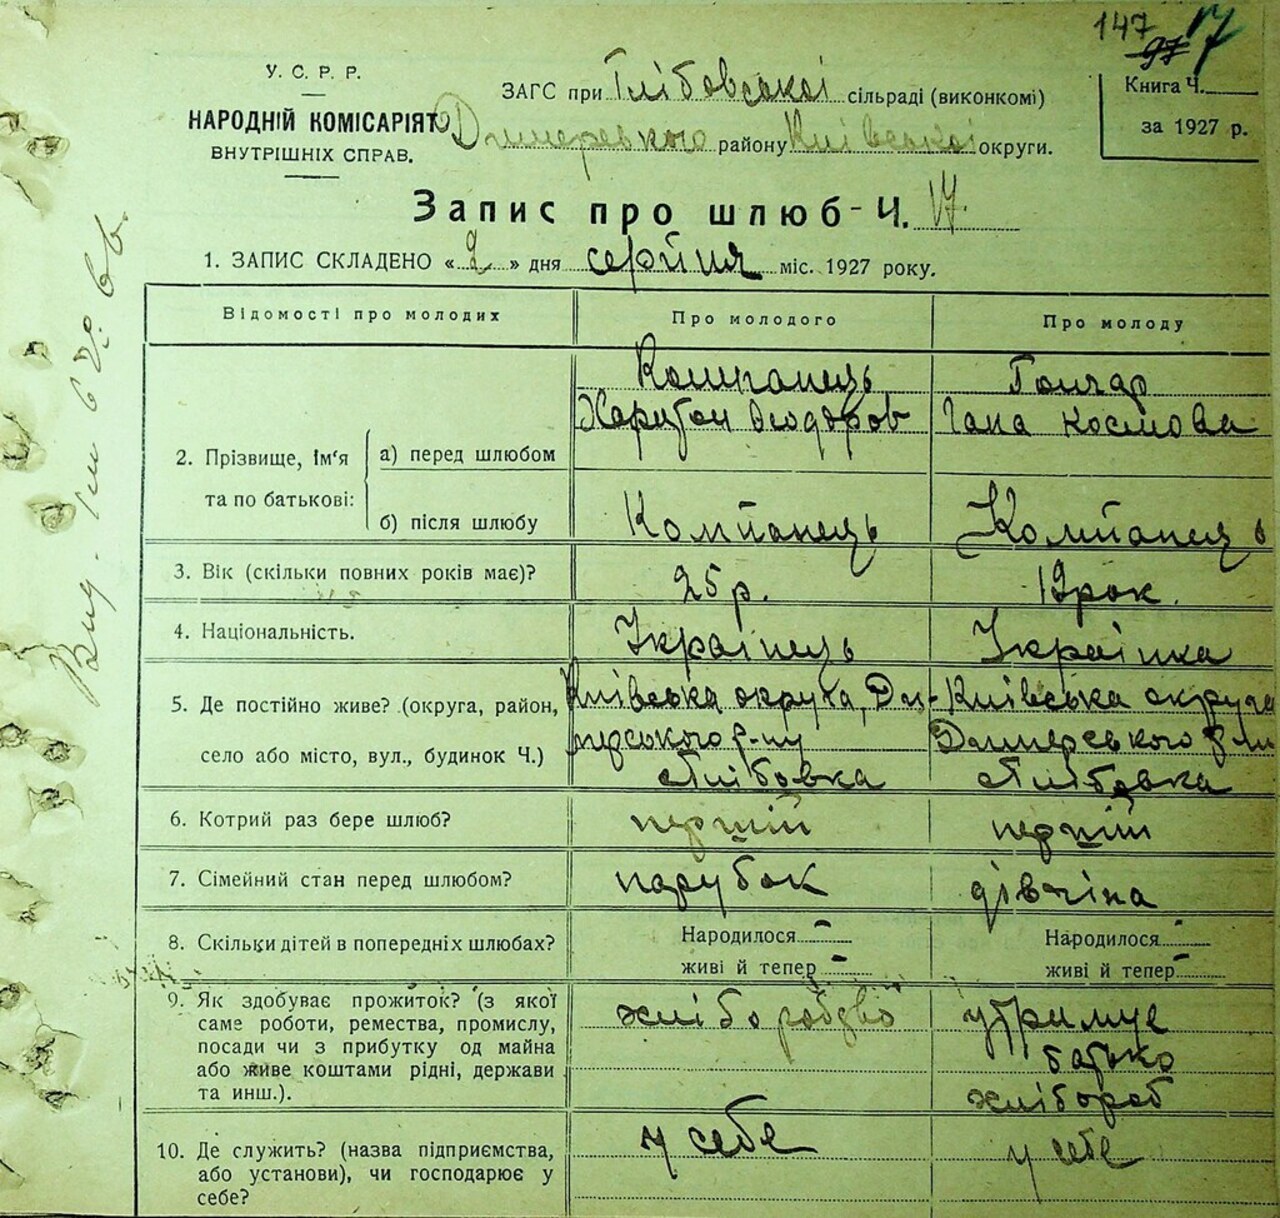 147 97 17
У. С. Р. Р.
НАРОДНІЙ КОМІСАРІЯТ
ВНУТРІШНІХ СПРАВ.
ЗАГС при Глібовської сільраді (виконкомі)
Димерського району Київської округи.
Книга Ч.
за 1927 р.
Запис про шлюб - Ч. 17.
1. ЗАПИС СКЛАДЕНО «2» дня серпня міс. 1927 року.
Відомості про молодих Про молодого Про молоду
2. Прізвище, ім'я та по батькові:
а) перед шлюбом
Компанець
Харитон Феодоров
Гончар
Гана Космова
б) після шлюбу Компанець Компанець
3. Вік (скільки повних років має)? 25 р. 19 рок.
4. Національність. Українець Українка
5. Де постійно живе? (округа, район,
село або місто, вул., будинок Ч.)
Київська округа, Ди-
мерського р-ну
Глібовка
Київська округа
Димерського р-ну
Глібовка
6. Котрий раз бере шлюб? першій першій
7. Сімейний стан перед шлюбом? парубок дівчіна
8. Скільки дітей в попередніх шлюбах?
Народилося -
живі й тепер -
Народилося -
живі й тепер -
9. Як здобуває прожиток? (з якої
саме роботи, ремества, промислу,
посади чи з прибутку од майна
або живе коштами рідні, держави
та инш.).
хліборобство
утримує
батько
хлібороб
10. Де служить? (назва підприємства,
або установи), чи господарює у
себе?
у себе
у себе